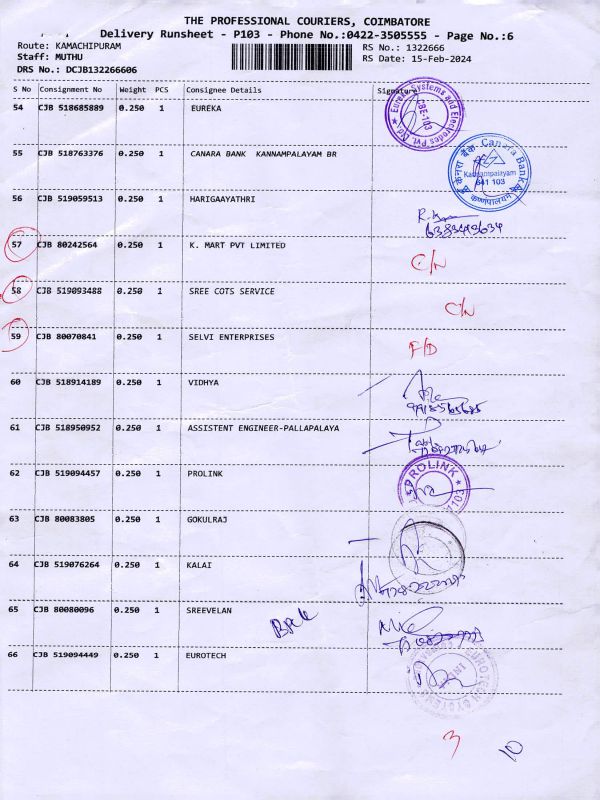 THE PROFESSIONAL COURIERS, COIMBATORE
Delivery Runsheet - P103 - Phone No.:0422-3505555 - Page No.:6
Route: KAMACHIPURAM
RS No.: 1322666
Staff: MUTHU
RS Date: 15-Feb-2024
DRS No.: DCJB132266606
S No Consignment No Weight PCS Consignee Details Signature
54 CJB 518685889 0.250 1 EUREKA
Eureka Systems and Electrodes Pvt Ltd.
CBE-103
55 CJB 518763376 0.250 1 CANARA BANK KANNAMPALAYAM BR
केनरा बैंक Canara Bank
Kannampalayam
641 103
56 CJB 519059513 0.250 1 HARIGAAYATHRI
57 CJB 80242564 0.250 1 K. MART PVT LIMITED
C/N
58 CJB 519093488 0.250 1 SREE COTS SERVICE
C/N
59 CJB 80070841 0.250 1 SELVI ENTERPRISES
F/D
60 CJB 518914189 0.250 1 VIDHYA
61 CJB 518950952 0.250 1 ASSISTENT ENGINEER-PALLAPALAYA
62 CJB 519094457 0.250 1 PROLINK
PROLINK
63 CJB 80083805 0.250 1 GOKULRAJ
64 CJB 519076264 0.250 1 KALAI
65 CJB 80080096 0.250 1 SREEVELAN
66 CJB 519094449 0.250 1 EUROTECH
EUROTECH SYSTEMS
3
10